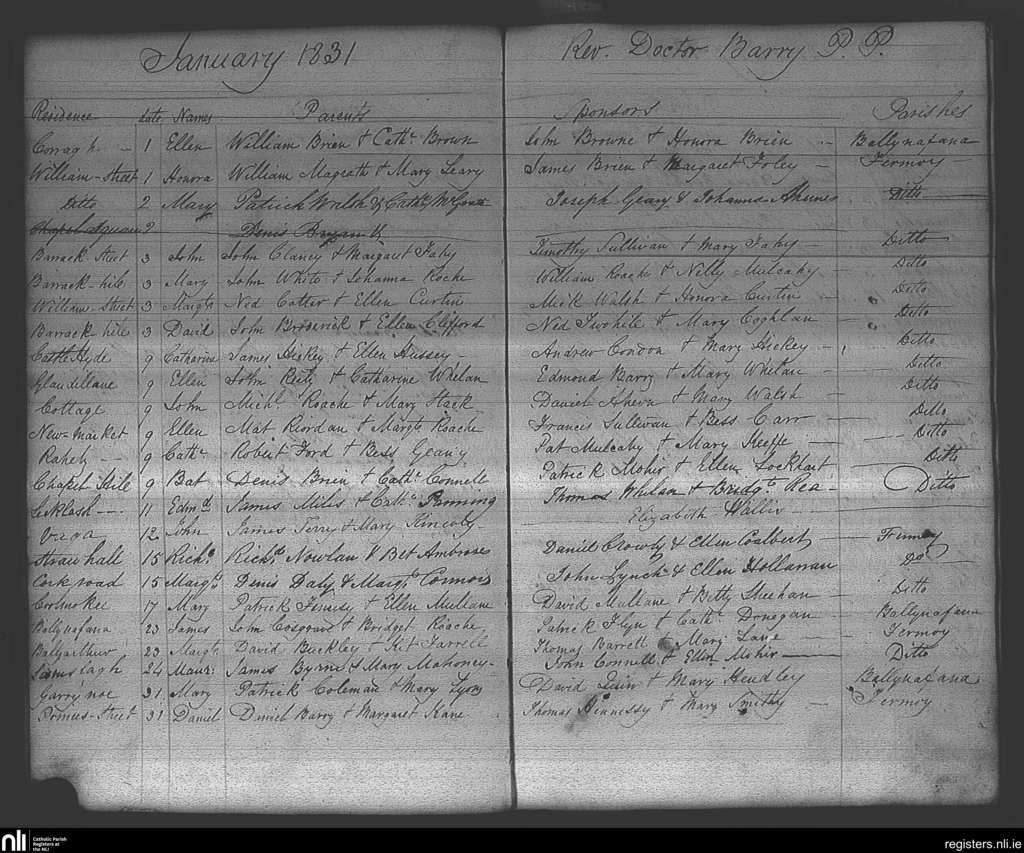 January 1831 Rev. Doctor Barry P. P.
Residence date Names Parents Sponsors Parishes
Corragh 1 Ellen William Brien & Cath. Brown John Browne & Honora Brien Ballynafana
William-Street 1 Honora William Magrath & Mary Leary James Brien & Margaret Foley Fermoy
Ditto 2 Mary Patrick Walsh & Cath. Joseph Geary & Johanna Ahearnes Ditto
Chapel Square 2 Denis Bryan
Barrack Street 3 John John Clancy & Margaret Fahy Timothy Sullivan & Mary Fahy Ditto
Barrack-hile 3 Mary John White & Johanna Roche William Roache & Nelly Mulcahy Ditto
William-Street 3 Margt. Ned Cotter & Ellen Curtin Mick Walsh & Honora Curtin Ditto
Barrack hile 3 David John Broderick & Ellen Clifford Ned Twohile & Mary Coghlan Ditto
Castle Hyde 9 Catharine James Hickey & Ellen Hussey Andrew Condon & Mary Hickey Ditto
9 Ellen John Reily & Catharine Whelan Edmond Barry & Mary Whelan Ditto
Cottage 9 John Michl. Roache & Mary Stack Daniel Ahern & Mary Walsh Ditto
New-market 9 Ellen Mat Riordan & Margt. Roache Frances Sullivan & Bess Carr Ditto
Rahely 9 Cath. Robert Ford & Bess Geany Pat Mulcahy & Mary Keeffe Ditto
Chapel Hile 9 Bat Denis Brien & Cath. Connell Patrick Mohir & Ellen Lockhart Ditto
11 Edmd. James Miles & Cath. Fanning Thomas Whelan & Bridgt. Rea Ditto
12 John James Terry & Mary Elizabeth Wallis
Straw hall 15 Richd. Richd. Nowlan & Bet Ambrose Daniel Crowly & Ellen Coalbert Fermoy
Cork road 15 Margt. Denis Daly & Margt. Connors John Lynch & Ellen Holloran Do.
17 Mary Patrick & Ellen Mullane David Mullane & Betty Sheehan Ditto
Ballynafana 23 James John Cosgrave & Bridget Roache Patrick Flyn & Cath. Donegan Ballynafana
Ballyarthur 23 Margt. David Buckley & Kit Farrell Thomas Barrett & Mary Lane Fermoy
24 Maur: James Byrne & Mary Mahoney John Connell & Ellen Mohir Ditto
Garrynoe 31 Mary Patrick Coleman & Mary Lyons David Quin & Mary Hendley Ballynafana
Princes-Street 31 Daniel Daniel Barry & Margaret Kane Thomas Hennessy & Mary Smithy Fermoy
nli Catholic Parish Registers at the NLI
registers.nli.ie